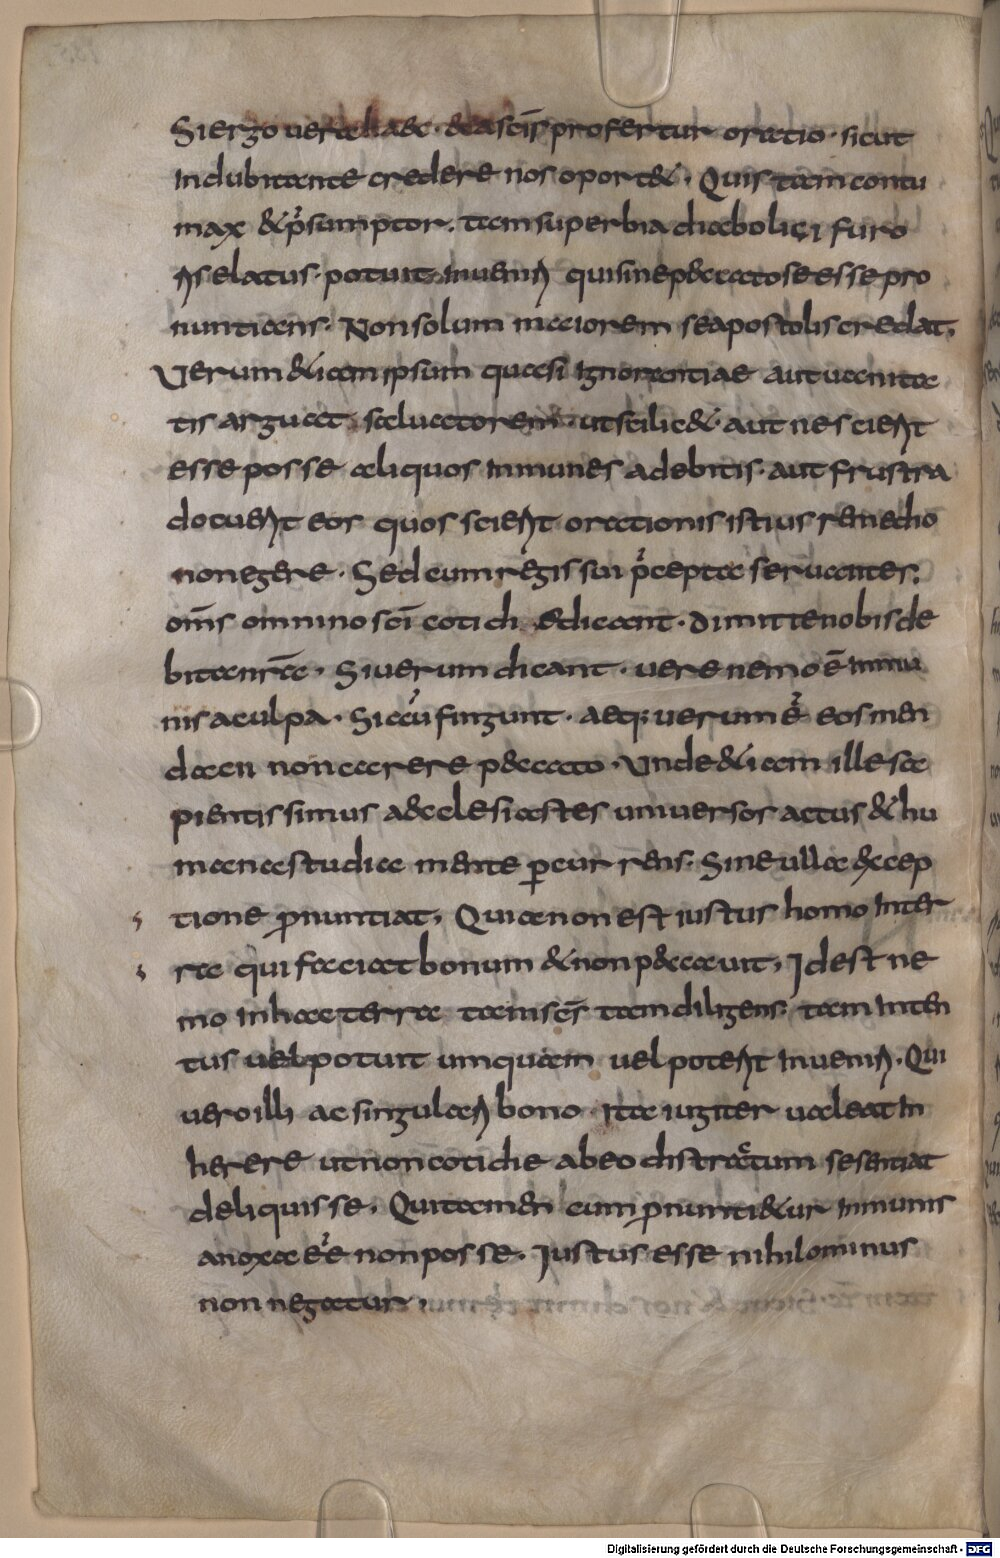 Si ergo uera haec · & a scīs profertur oratio · sicut
indubitante credere nos oport& · Quis tam contu
max & p̄sumptor · tam superbia diabolici furo
ris elatus · potuit inueniri qui sine peccato se esse pro
nuntians · Non solum maiorem se apostolis credat,
Verum &iam ipsum quasi ignorantiae aut uanita
tis arguat saluatorem · ut scilic& · aut nescierit
esse posse aliquos inmunes a debitis · aut frustra
docuerit eos quos scierit orationis istius remedio
non egere · Sed cum regis sui p̄cepta seruantes ·
om̄s omnino sc̄i cotidie dicant · dimitte nobis de
bita nr̄a · Si uerum dicant · uere nemo ē inmu
nis a culpa · Si aū fingunt · aeq; uerum ēē eos men
dacii non carere p&ccato · Unde &iam ille sa
pientissimus aecclesiastes uniuersos actus & hu
mana studia mente ꝑcurrens · Sine ulla excep
tione pronuntiat, Quia non est iustus homo in ter
ra qui faciat bonum & non peccauit, Id est ne
mo in hac terra tam scs̄ tam diligens · tam inten
tus uel potuit umquam uel poterit inueniri · Qui
uero illi ac singulari bono ita iugiter ualeat in
herere ut non cotidie ab eo distractum se sentiat
deliquisse, Qui tamen cum pronunti&ur inmunis
a noxa ēē non posse · Iustus esse nihilominus
non negatur ·
Digitalisierung gefördert durch die Deutsche Forschungsgemeinschaft - DFG